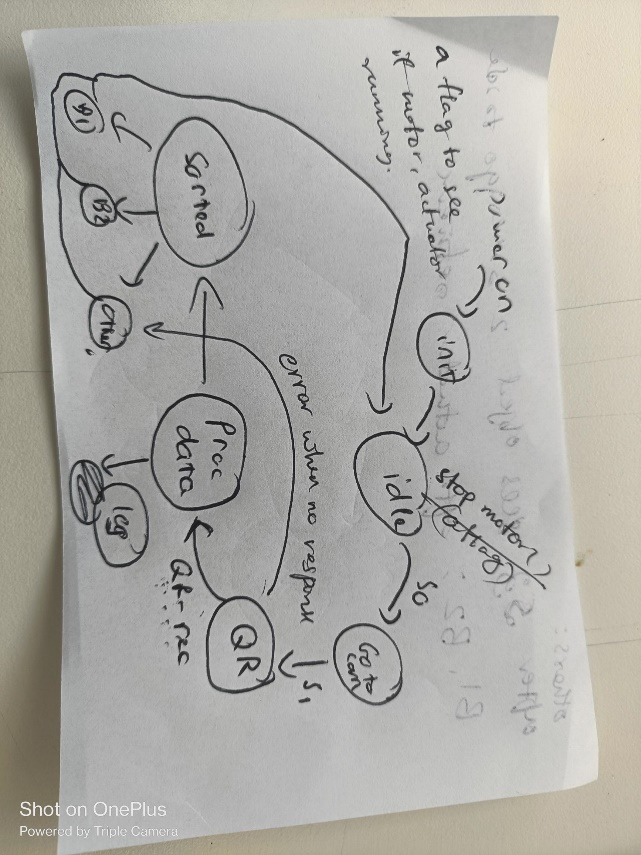 a flag to see
if motor, actuator
running.
power on
init
idle
stop motor
S0
Go to
cam
S1
QR
error when no response
QR-rec
Proc
data
log
Sorted
B1
B2
Other
Shot on OnePlus
Powered by Triple Camera